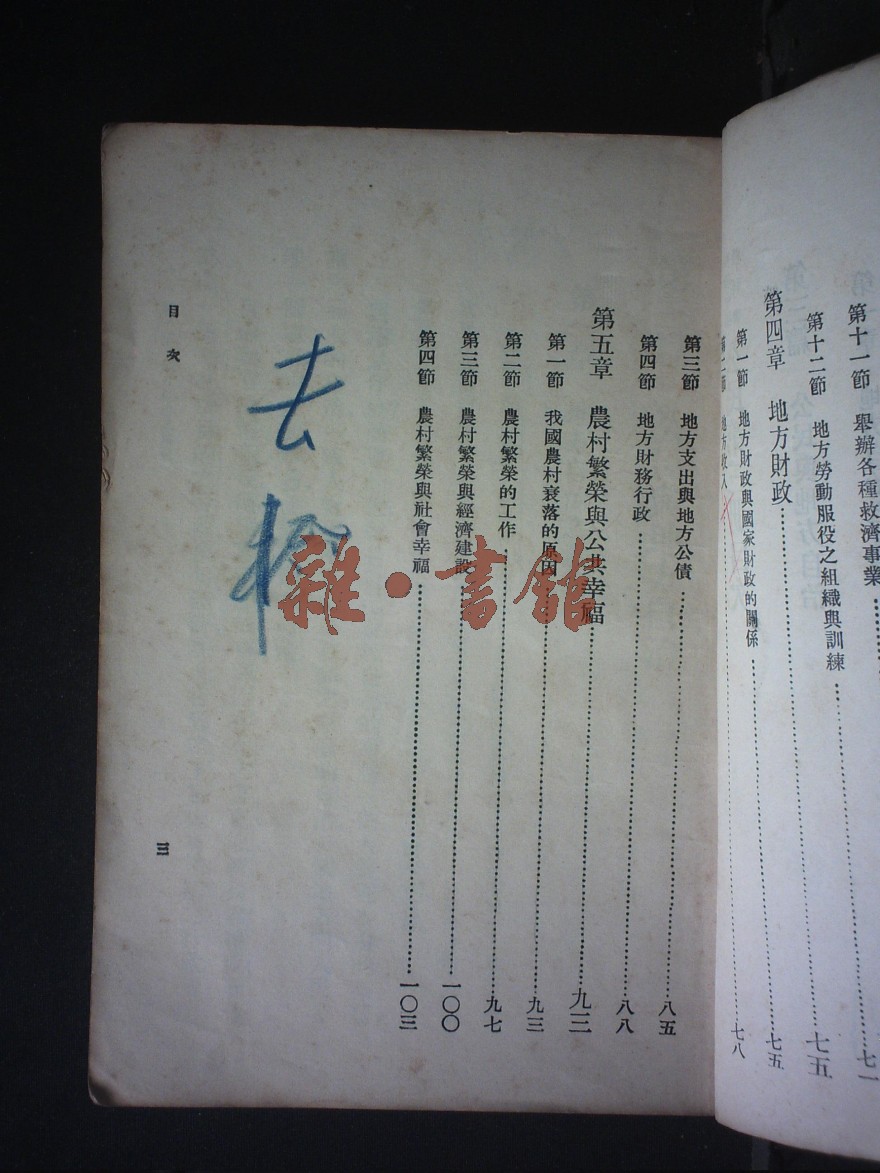 第十一節 舉辦各種救濟事業……七一
第十二節 地方勞動服役之組織與訓練……七五
第四章 地方財政……七五
第一節 地方財政與國家財政的關係……七八
地方收入
第三節 地方支出與地方公債……八五
第四節 地方財務行政……八八
第五章 農村繁榮與公共幸福……九三
第一節 我國農村衰落的原因……九三
第二節 農村繁榮的工作……九七
第三節 農村繁榮與經濟建設……一〇〇
第四節 農村繁榮與社會幸福……一〇三
去
目次
三
雜·書館